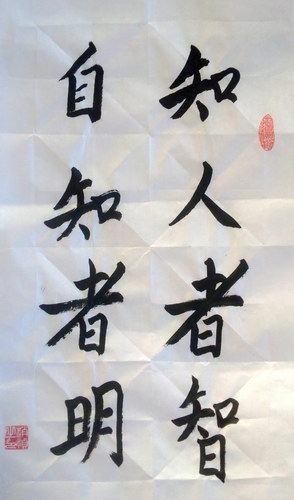 知人者智
自知者明